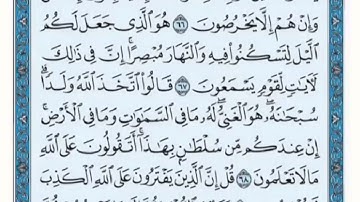 وَإِنْ هُمْ إِلَّا يَخْرُصُونَ ٦٦ هُوَ الَّذِي جَعَلَ لَكُمُ
الَّيْلَ لِتَسْكُنُوا فِيهِ وَالنَّهَارَ مُبْصِرًا إِنَّ فِي ذَٰلِكَ
لَآيَاتٍ لِقَوْمٍ يَسْمَعُونَ ٦٧ قَالُوا اتَّخَذَ اللَّهُ وَلَدًا
سُبْحَانَهُ هُوَ الْغَنِيُّ لَهُ مَا فِي السَّمَاوَاتِ وَمَا فِي الْأَرْضِ
إِنْ عِندَكُم مِّن سُلْطَانٍ بِهَٰذَا أَتَقُولُونَ عَلَى اللَّهِ
مَا لَا تَعْلَمُونَ ٦٨ قُلْ إِنَّ الَّذِينَ يَفْتَرُونَ عَلَى اللَّهِ الْكَذِبَ